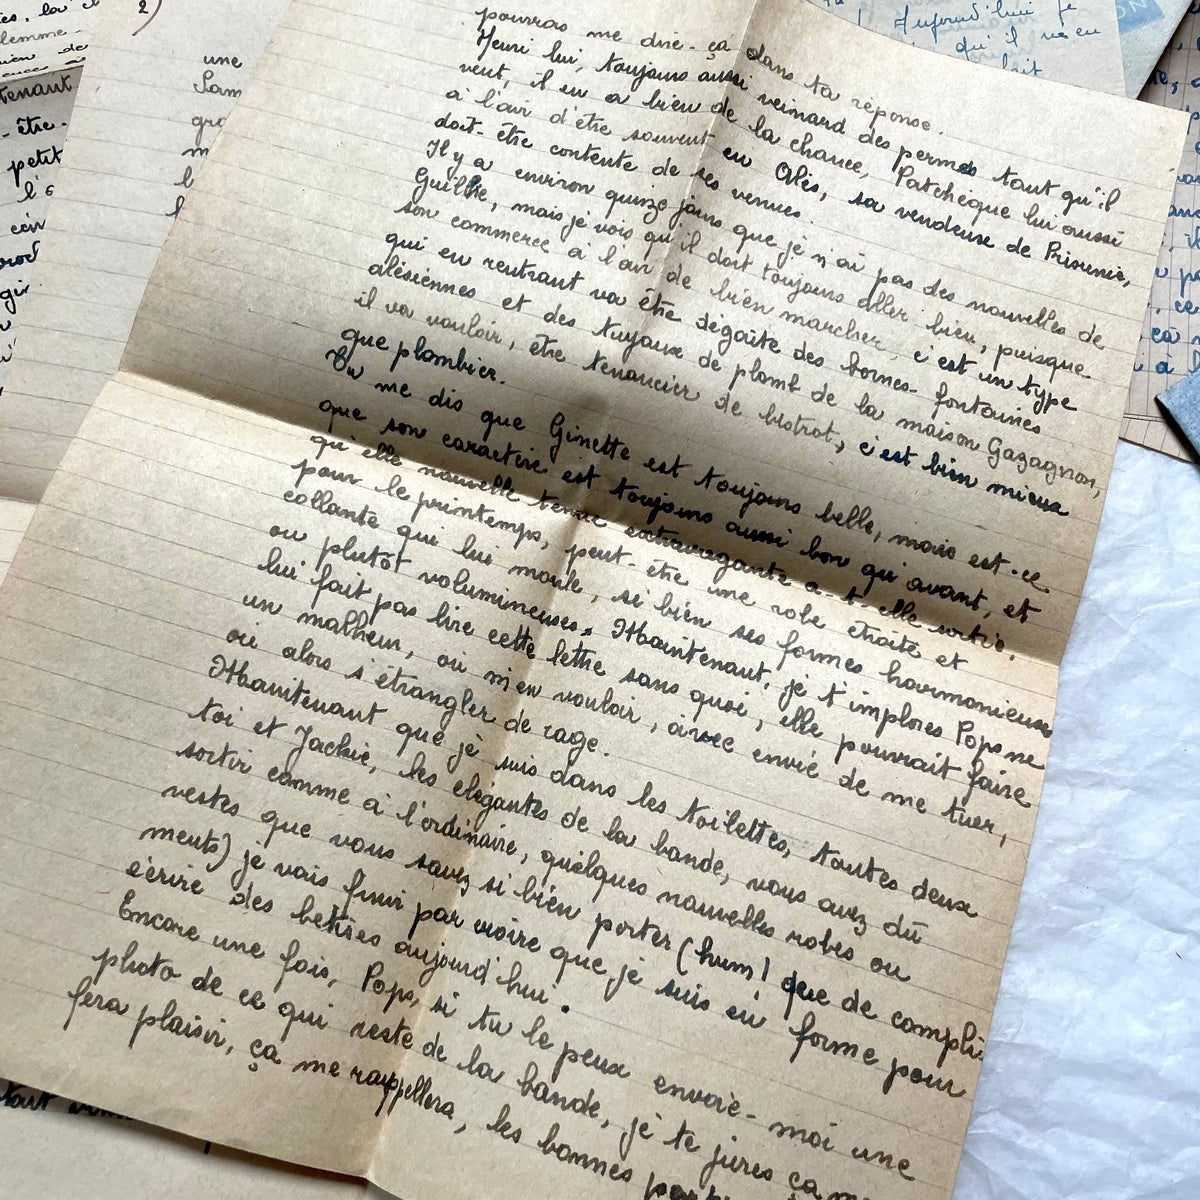 pourras me dire-ça dans ta réponse.
Henri lui, toujours aussi veinard des permes tant qu'il
veut, il en a bien de la chance, Patchèque lui aussi
a l'air d'être souvent en Alès, sa vendeuse de Prisunic,
doit-être contente de ses venues.
Il y a environ quinze jours que je n'ai pas des nouvelles de
Guilhe, mais je vois qu'il doit toujours aller bien, puisque
son commerce à l'air de bien marcher, c'est un type
qui en rentrant va être dégoûté des bornes-fontaines
alésiennes et des tuyaux de plomb de la maison Gazagnon,
il va vouloir, être tenancier de bistrot, c'est bien mieux
que plombier.
Tu me dis que Ginette est toujours belle, mais est-ce
que son caractère est toujours aussi bon qu'avant, et
qu'elle nouvelle tenue extravagante a-t-elle sortie,
pour le printemps, peut-être une robe étroite et
collante qui lui moule, si bien ses formes harmonieuses
ou plutôt volumineuses. Maintenant, je t'implores Pops ne
lui fait pas lire cette lettre sans quoi, elle pourrait faire
un malheur, ou m'en vouloir, avec envie de me tuer,
où alors s'étrangler de rage.
Maintenant que je suis dans les toilettes, toutes deux
toi et Jackie, les élégantes de la bande, vous avez dû
sortir comme à l'ordinaire, quelques nouvelles robes ou
vestes que vous savez si bien porter (hum) que de compli-
ments) je vais finir par croire que je suis en forme pour
écrire des betises aujourd'hui.
Encore une fois, Pops, si tu le peux envoie-moi une
photo de ce qui reste de la bande, je te jures ça me
fera plaisir, ça me rappellera, les bonnes
2)
une
l'
petit
-être-
tenant
Aujourd'hui je
qu'il